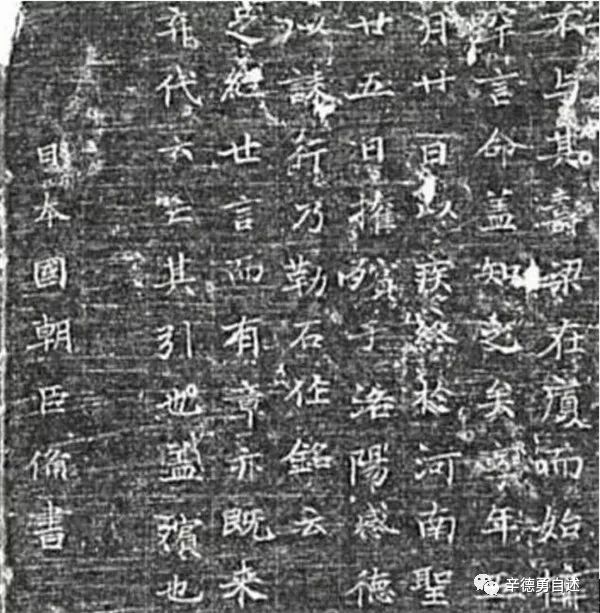 不与其壽梁在廈而始構
言命盖知之矣享年五
月廿日以疾終於河南聖
廿五日權殯于洛陽感德
以誄行乃勒石作銘云
足經世言而有章亦既来
弃代云亡其引也盖殯也
日本國朝臣備書
辛德勇自述